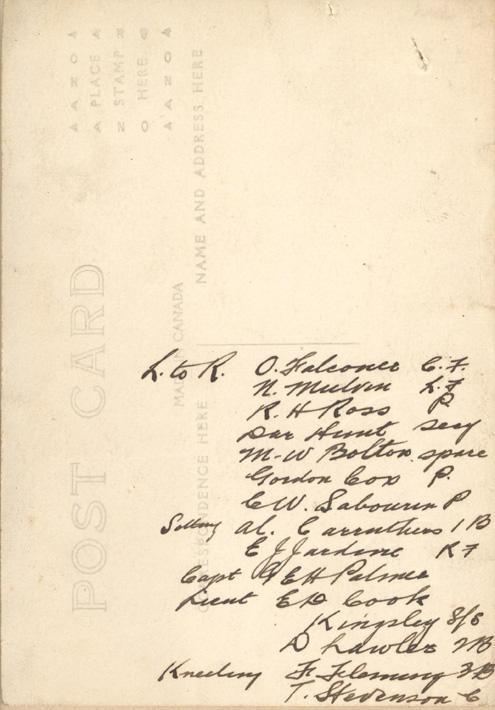 POST CARD
CORRESPONDENCE HERE
MADE IN CANADA
NAME AND ADDRESS HERE
PLACE
STAMP
HERE
AZOA
AZOA
L. to R. O. Falconer C.F.
N. Mulvin L.F
R. H Ross P.
Dar Hunt secy
M-W Bolton spare
Gordon Cox P.
E W. Sabourin P
Sitting Al. Carruthers 1 B
E J Jardine R F
Capt G E H Palmer
Lieut E D Cook
Kingsley S/S
D Lawler 2 B
Kneeling F. Fleming 3 B
T. Stevenson C